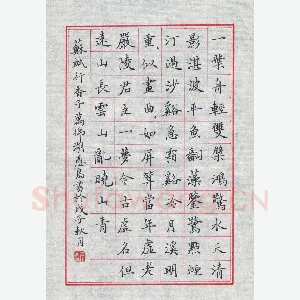 一葉舟輕雙槳鴻驚水天清
影湛波平魚翻藻鑒鷺點煙
汀過沙谿急霜谿冷月溪明
重似畫曲如屏算當年虛老
嚴陵君臣一夢今古虛名但
遠山長雲山亂曉山青
蘇軾行香子書於戊子秋月